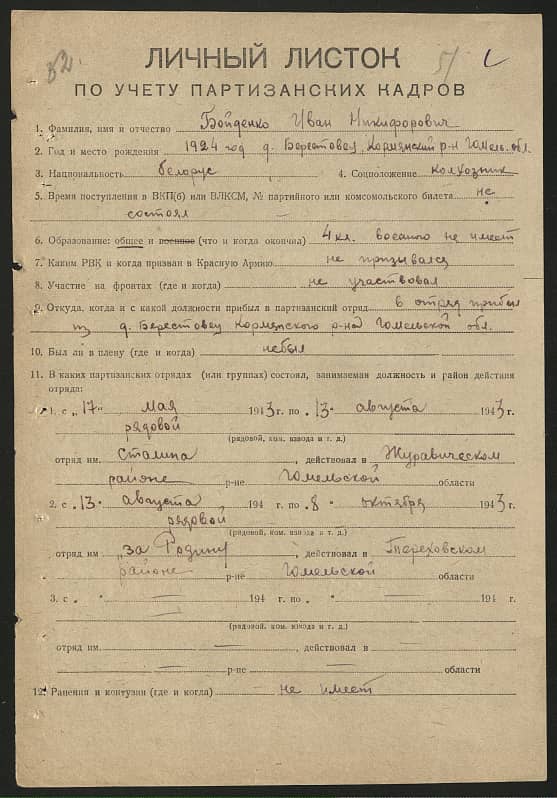 82.
5/
ЛИЧНЫЙ ЛИСТОК
ПО УЧЕТУ ПАРТИЗАНСКИХ КАДРОВ
1. Фамилия, имя и отчество Бойденко Иван Никифорович
2. Год и место рождения 1924 год д. Берестовец, Кормянский р-н Гомель. обл.
3. Национальность белорус 4. Соцположение колхозник
5. Время поступления в ВКП(б) или ВЛКСМ, № партийного или комсомольского билета не
состоял
6. Образование: общее и военное (что и когда окончил) 4 кл. военого не имеет
7. Каким РВК и когда призван в Красную Армию не призывался
8. Участие на фронтах (где и когда) не участвовал
9. Откуда, когда и с какой должности прибыл в партизанский отряд в отряд прибыл
из д. Берестовец Кормянского р-на Гомельской обл.
10. Был ли в плену (где и когда) небыл
11. В каких партизанских отрядах (или группах) состоял, занимаемая должность и район действия
отряда:
1. с „17" мая 1943 г. по „13" августа 1943 г.
рядовой
(рядовой, ком. взвода и т. д.)
отряд им. Сталина, действовал в Журавическом
районе р-не Гомельской области
2. с „13" августа 194 г. по „8" октября 1943 г.
рядовой
(рядовой, ком. взвода и т. д.)
отряд им. „за Родину", действовал в Тереховском
районе р-не Гомельской области
3. с „ " — 194 г. по „ " — 194 г.
(рядовой, ком. взвода и т. д.)
отряд им. — , действовал в —
— р-не — области
12. Ранения и контузии (где и когда) не имеет